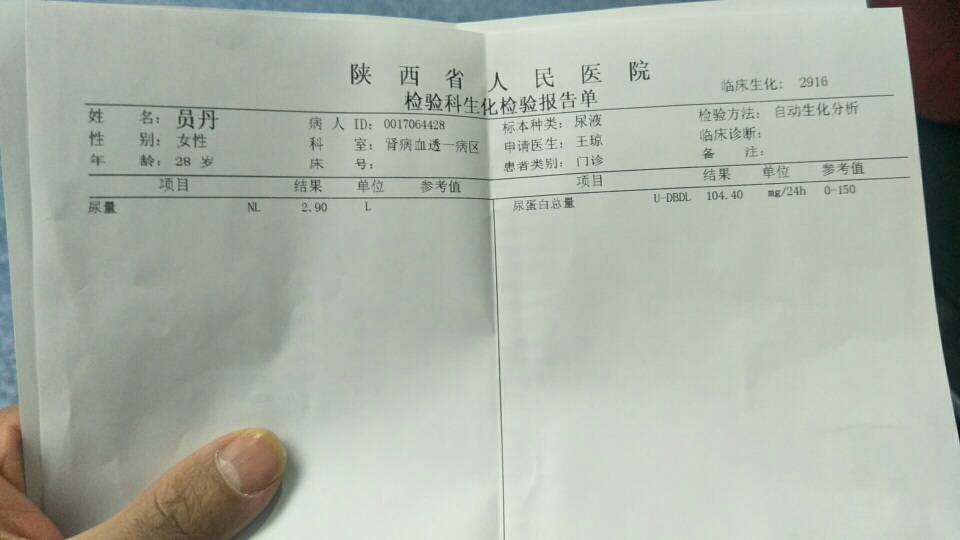 陕西省人民医院
检验科生化检验报告单 临床生化: 2916
姓 名: 员丹 病人ID: 0017064428 标本种类: 尿液 检验方法: 自动生化分析
性 别: 女性 科 室: 肾病血透一病区 申请医生: 王琼 临床诊断:
年 龄: 28 岁 床 号: 患者类别: 门诊 备 注:
项目 结果 单位 参考值 项目 结果 单位 参考值
尿量 NL 2.90 L 尿蛋白总量 U-DBDL 104.40 mg/24h 0-150